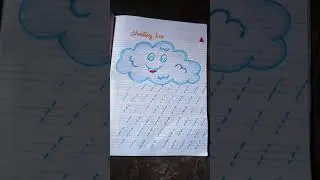 slanting line